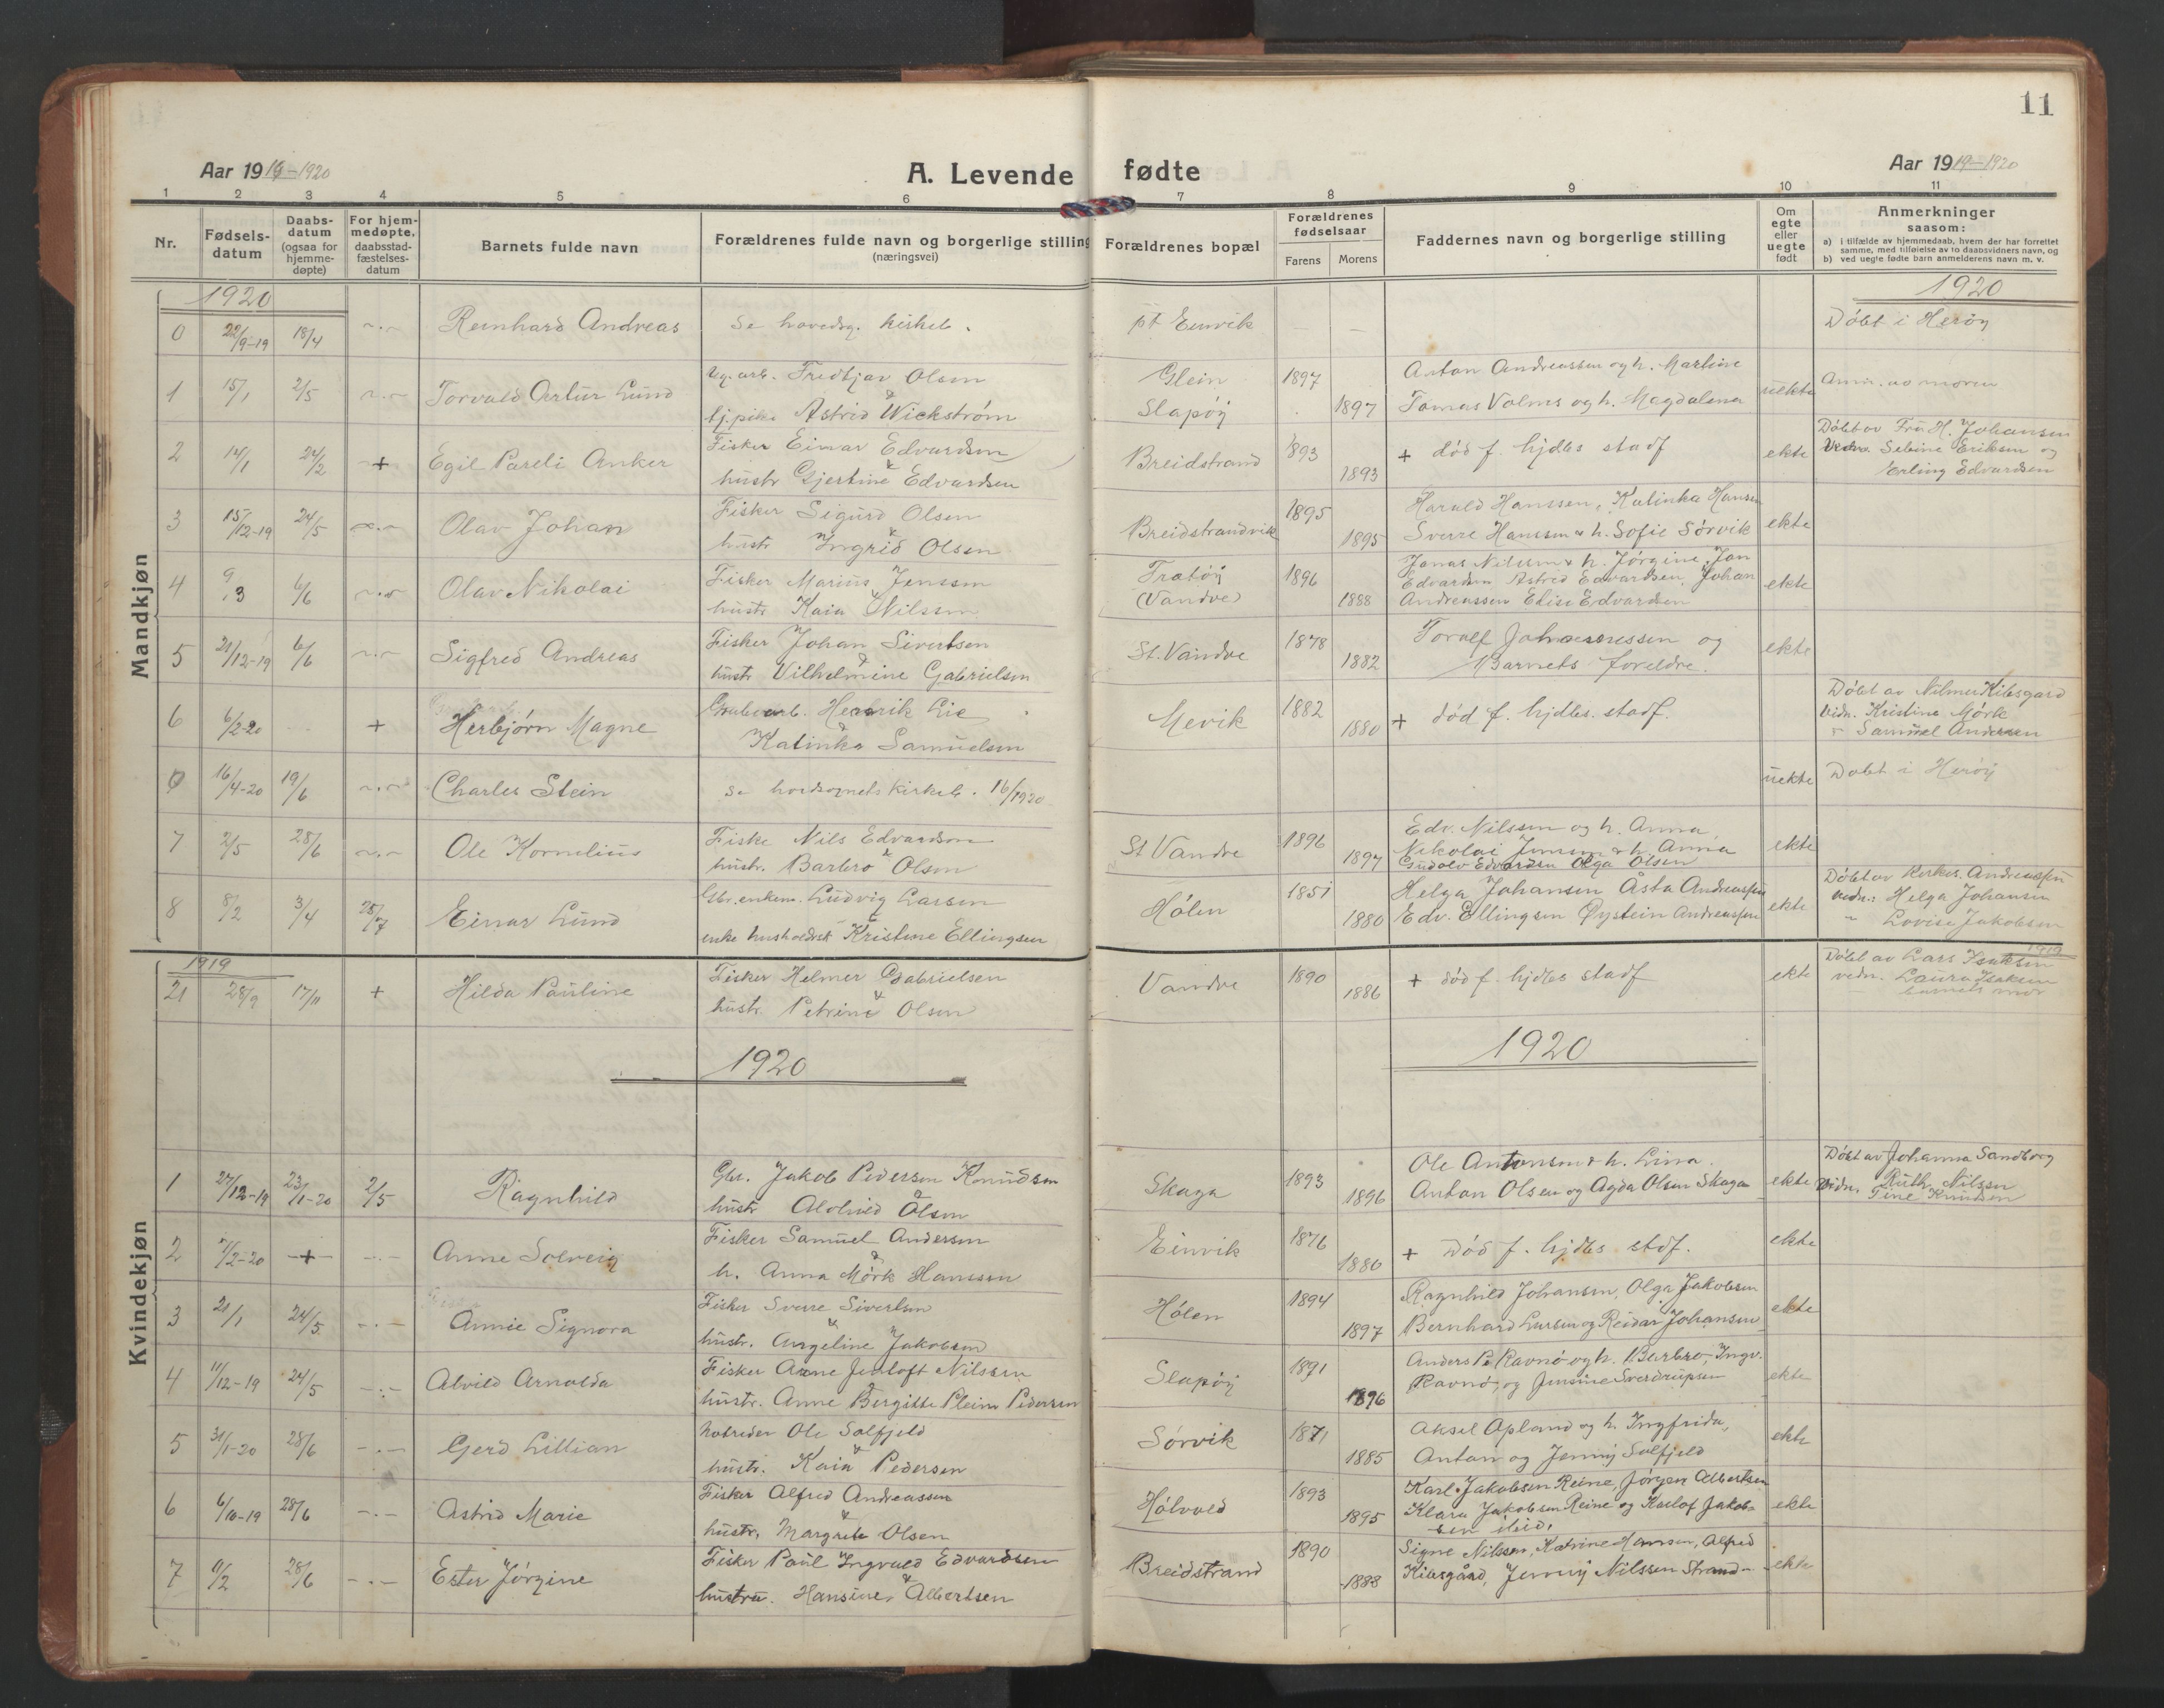 11
Aar 1919-1920 A. Levende fødte Aar 1919-1920
1 2 3 4 5 6 7 8 9 10 11
Nr. Fødsels-datum Daabs-datum (ogsaa for hjemme-døpte) For hjem-medøpte, daabsstad-fæstelses-datum Barnets fulde navn Forældrenes fulde navn og borgerlige stilling (næringsvei) Forældrenes bopæl Forældrenes fødselsaar Farens Morens Faddernes navn og borgerlige stilling Om egte eller uegte født Anmerkninger saasom: a) i tilfælde av hjemmedaab, hvem der har forrettet samme, med tilføielse av to daabsvidners navn, og b) ved uegte fødte barn anmelderens navn m. v.
Mandkjøn
1920 1920
0 22/9-19 18/4 -.- Reinhard Andreas se hovedsg. kirkeb. pt Einvik - - Döbt i Heröy
1 15/1 2/5 -.- Torvald Artur Lund Ug. arb. Fredtjav Olsen Glein 1897 Anton Andreassen og h. Martine uekte Anm. av moren
tj.pike Astrid Wickström Slapöy 1897 Tomas Volms og h. Magdalena
2 14/1 24/2 + Egil Pareli Anker Fisker Einar Edvardsen Breidstrand 1893 + död f. hjdbs stadf ekte Döbt av Fru H. Johansen
hustr Gjertine Edvardsen 1893 Vedn. Sebine Eriksen og
Erling Edvardsen
3 15/12-19 24/5 -.- Olav Johan Fisker Sigurd Olsen Breidstrandvik 1895 Harald Hanssen, Katinka Hansen ekte
hustr Ingrid Olsen 1895 Sverre Hanssen & h. Sofie Sörvik
4 9/3 6/6 -.- Olav Nikolai Fisker Marius Jenssen Tratöy 1896 Jonas Nilssen & h. Jörgine, Jan
hustr Kaia Nilssen (Vandve) 1888 Edvardsen Astrid Edvardsen, Johan ekte
Andreassen Elise Edvardsen
5 21/12-19 6/6 -.- Sigfred Andreas Fisker Johan Sivertsen St. Vandve 1878 Toralf Johannessen og ekte
hustr Vilhelmine Gabrielsen 1882 Barnets foreldre.
6 6/2-20 + Herbjørn Magne Grubearb. Henrik Lie Mevik 1882 + död f. hjdbs. stadf. Döbt av Nilmer Kibsgard
Katinka Samuelsen 1880 vidn. Kristine Mörk
" Samuel Andersen
0 16/4-20 19/6 -.- Charles Stein se hovdsognets kirkeb. 16/1920 uekte Dobt i Heröy
7 2/5 28/6 -.- Ole Kornelius Fiske Nils Edvardsen St Vandve 1896 Edv. Nilssen og h. Anna, ekte
hustr. Barbro Olsen 1897 Nikolai Jensen & h. Anna
Gudolv Edvardsen Olga Olsen
8 8/2 3/4 25/7 Einar Lund Gbr. enkem. Ludvig Larsen Hölen 1851 Helga Johansen Åsta Andreassen ekte Döbt av Kirkes. Andreassen
enke husholdrsk Kristine Ellingsen 1880 Edv. Ellingsen Øystein Andreassen vidn.: Helga Johansen
" Lovise Jakobsen
Kvindekjøn
1919 1919
21 28/9 17/11 + Hilda Pauline Fisker Helmer Gabrielsen Vandve 1890 + död f. hjdbs stadf ekte Döbt av Lars Isaksen
hustr. Petrine Olsen 1886 vedn. Laura Isaksen
barnets mor
1920 1920
1 27/12-19 23/1-20 2/5 Ragnhild Gbr. Jakob Pedersen Knudsen Skaga 1893 Ole Antonsen & h. Lina. ekte Döbt av Johanna Sandberg
hustr Alvhild Olsen 1896 Anton Olsen og Agda Olsen Skaga Vidn. Ruth Nilssen
Tine Knudsen
2 7/2-20 -+- -.- Anne Solveig Fisker Samuel Andersen Einvik 1876 + Död f. hjdbs stdf. ekte
h. Anna Mörk Hanssen 1880
3 21/1 24/5 -.- Annie Signora Fisker Sverre Sivertsen Hölen 1894 Ragnhild Johansen, Olga Jakobsen ekte
hustr. Angeline Jakobsen 1897 Bernhard Larsen og Reidar Johansen
4 11/12-19 24/5 -.- Alvild Arnolda Fisker Arne Jentoft Nilssen Slapöy 1891 Anders P. Ravnö og h. Barbro, Ingv. ekte
hustr. Anne Bergitte Pleim Pedersen 1896 Ravnö, og Jensine Sverdrupsen
5 31/1-20 28/6 -.- Gerd Lillian Notreder Ole Solfjeld Sörvik 1871 Aksel Apland og h. Ingfrida, ekte
hustr. Kaia Pedersen 1885 Anton og Jenny Solfjeld
6 6/10-19 28/6 -.- Astrid Marie Fisker Alfred Andreassen Hölvold 1893 Karl Jakobsen Reine, Jörgen Albertsen ekte
hustr. Margrete Olsen 1895 Klara Jakobsen Reine og Karlof Jakob-
sen ibid.
7 11/2 28/6 -.- Ester Jörgine Fisker Paul Ingvald Edvardsen Breidstrand 1890 Signe Nilssen, Katrine Hansen, Alfred ekte
hustru. Hansine Albertsen 1888 Kibsgård, Jenny Nilssen Strand-